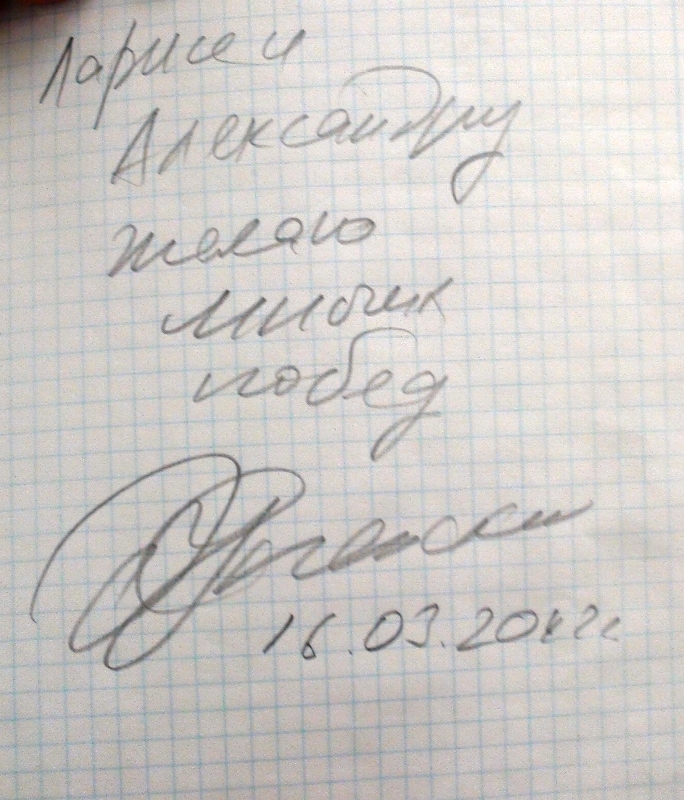 Ларисе и
Александру
желаю
побед
16.03.20